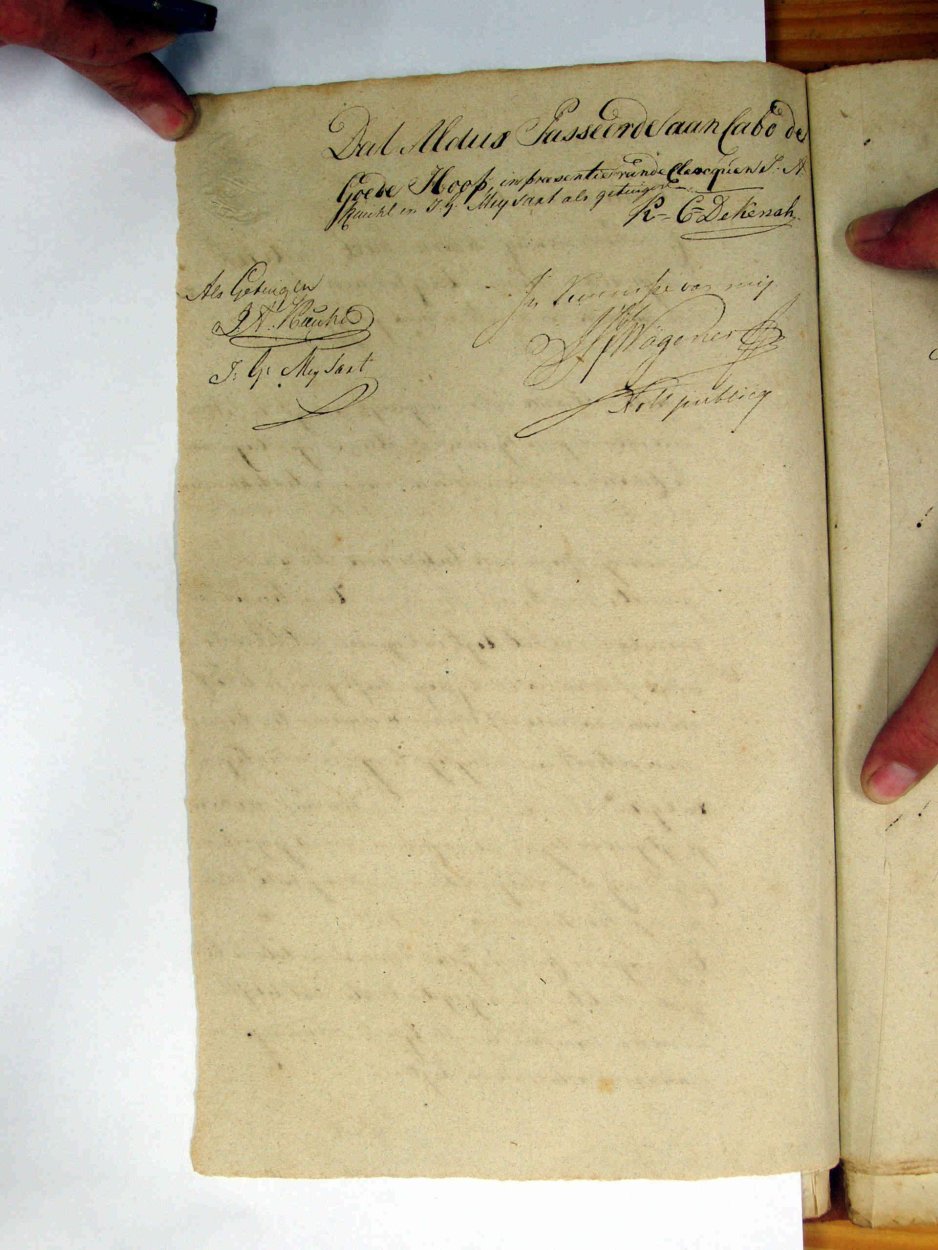 Dat Aldus Passeerde aan Cabo de
Goede Hoop, in præsentie van de Clercquen J. A.
Hauhl en J. G. Meysart als getuigen
R. C. Dekenah
Als Getuigen
J. A. Hauhl
J: G: Meysart
In kennisse van mij
Wagener
Nots publicq